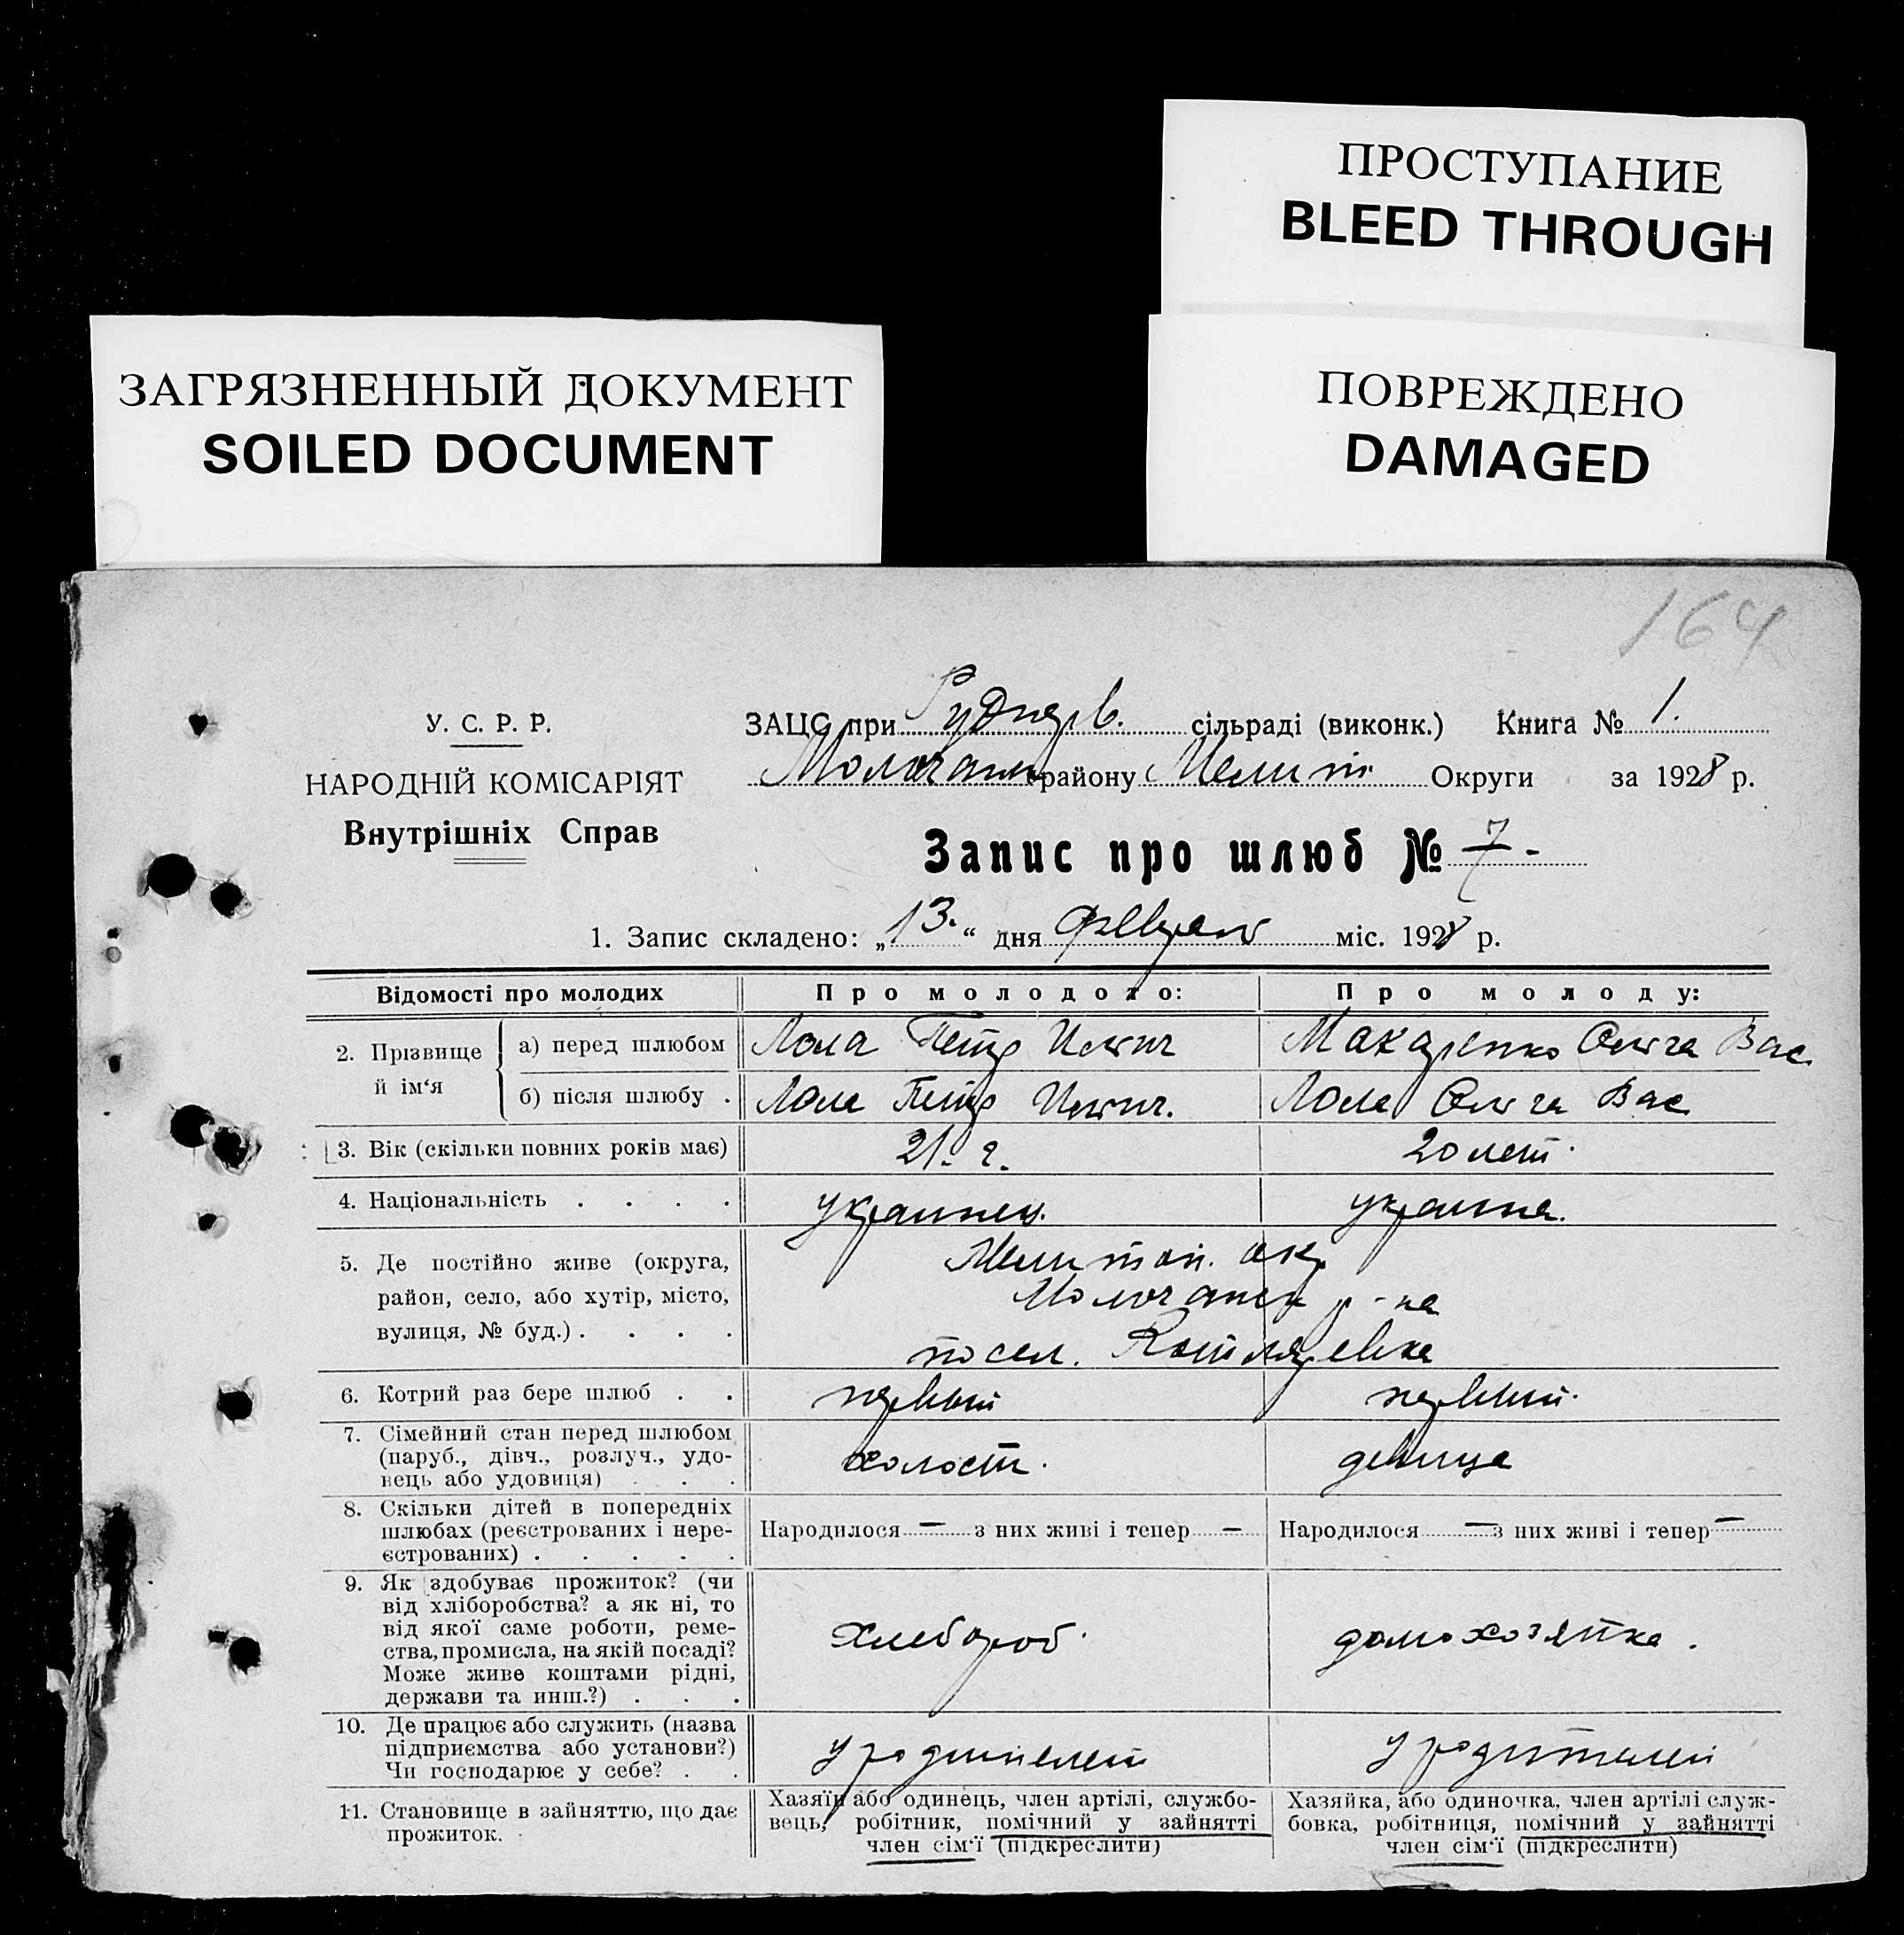 ПРОСТУПАНИЕ
BLEED THROUGH
ЗАГРЯЗНЕННЫЙ ДОКУМЕНТ
SOILED DOCUMENT
ПОВРЕЖДЕНО
DAMAGED
164
У. С. Р. Р.
НАРОДНІЙ КОМІСАРІЯТ
Внутрішніх Справ
ЗАЦС при Руднерв. сільраді (виконк.) Книга № 1.
Молочанск району Мелит Округи за 1928 р.
Запис про шлюб № 7 -
1. Запис складено: „13.“ дня февраля міс. 1928 р.
Відомості про молодих
Про молодого:
Про молоду:
2. Прізвище й ім‘я
а) перед шлюбом
Лола Петр Ильич
Макаренко Ольга Вас.
б) після шлюбу .
Лола Петр Ильич.
Лола Ольга Вас
3. Вік (скільки повних років має)
21. г.
20 лет.
4. Національність . . . .
украинец.
украинка.
5. Де постійно живе (округа,
район, село, або хутір, місто,
вулиця, № буд.) . . . .
Мелитоп. окр
Молочанск р-на
посел. Котляревка
6. Котрий раз бере шлюб . .
первый
первый.
7. Сімейний стан перед шлюбом
(паруб., дівч., розлуч., удо-
вець або удовиця) . . .
холост.
девица
8. Скільки дітей в попередніх
шлюбах (реєстрованих і нере-
єстрованих) . . . . .
Народилося — з них живі і тепер —
Народилося — з них живі і тепер —
9. Як здобуває прожиток? (чи
від хліборобства? а як ні, то
від якої саме роботи, реме-
ства, промисла, на якій посаді?
Може живе коштами рідні,
держави та инш.?) . . .
хлебороб.
домохозяйка.
10. Де працює або служить (назва
підприємства або установи?)
Чи господарює у себе? . .
у родителей
у родителей
11. Становище в зайняттю, що дає
прожиток.
Хазяїн або одинець, член артілі, службо-
вець, робітник, помічний у зайнятті
член сім‘ї (підкреслити)
Хазяйка, або одиночка, член артілі служ-
бовка, робітниця, помічний у зайнятті
член сім‘ї (підкреслити)